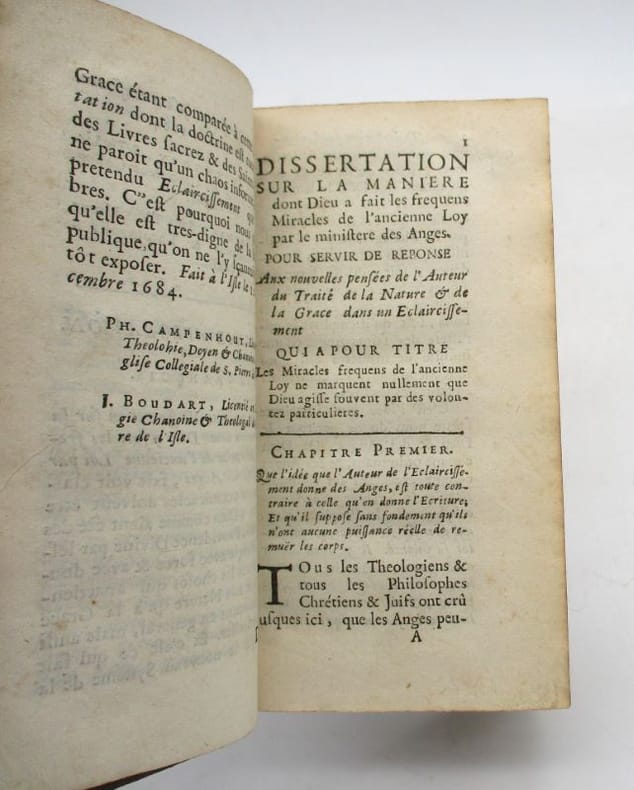 Grace étant comparée à cette
tation dont la doctrine est
des Livres sacrez & des Saints
ne paroit qu'un chaos informe
pretendu Eclaircissement
bres. C'est pourquoi nous
qu'elle est tres-digne de la
publique, qu'on ne l'y
tôt exposer. Fait à l'Isle le
cembre 1684.
PH. CAMPENHOUT,
Theologie, Doyen &
glise Collegiale de S. Pierre
J. BOUDART, Licentié
gie Chanoine & Theologal
re de l'Isle.
1
DISSERTATION
SUR LA MANIERE
dont Dieu a fait les frequens
Miracles de l'ancienne Loy
par le ministere des Anges.
POUR SERVIR DE REPONSE
Aux nouvelles pensées de l'Auteur
du Traité de la Nature & de
la Grace dans un Eclaircisse-
ment
QUI A POUR TITRE
Les Miracles frequens de l'ancienne
Loy ne marquent nullement que
Dieu agisse souvent par des volon-
tez particulieres.
CHAPITRE PREMIER.
Que l'idée que l'Auteur de l'Eclaircisse-
ment donne des Anges, est toute con-
traire à celle qu'en donne l'Ecriture;
Et qu'il suppose sans fondement qu'ils
n'ont aucune puissance réelle de re-
muër les corps.
TOus les Theologiens &
tous les Philosophes
Chrétiens & Juifs ont crû
jusques ici, que les Anges peu-
A